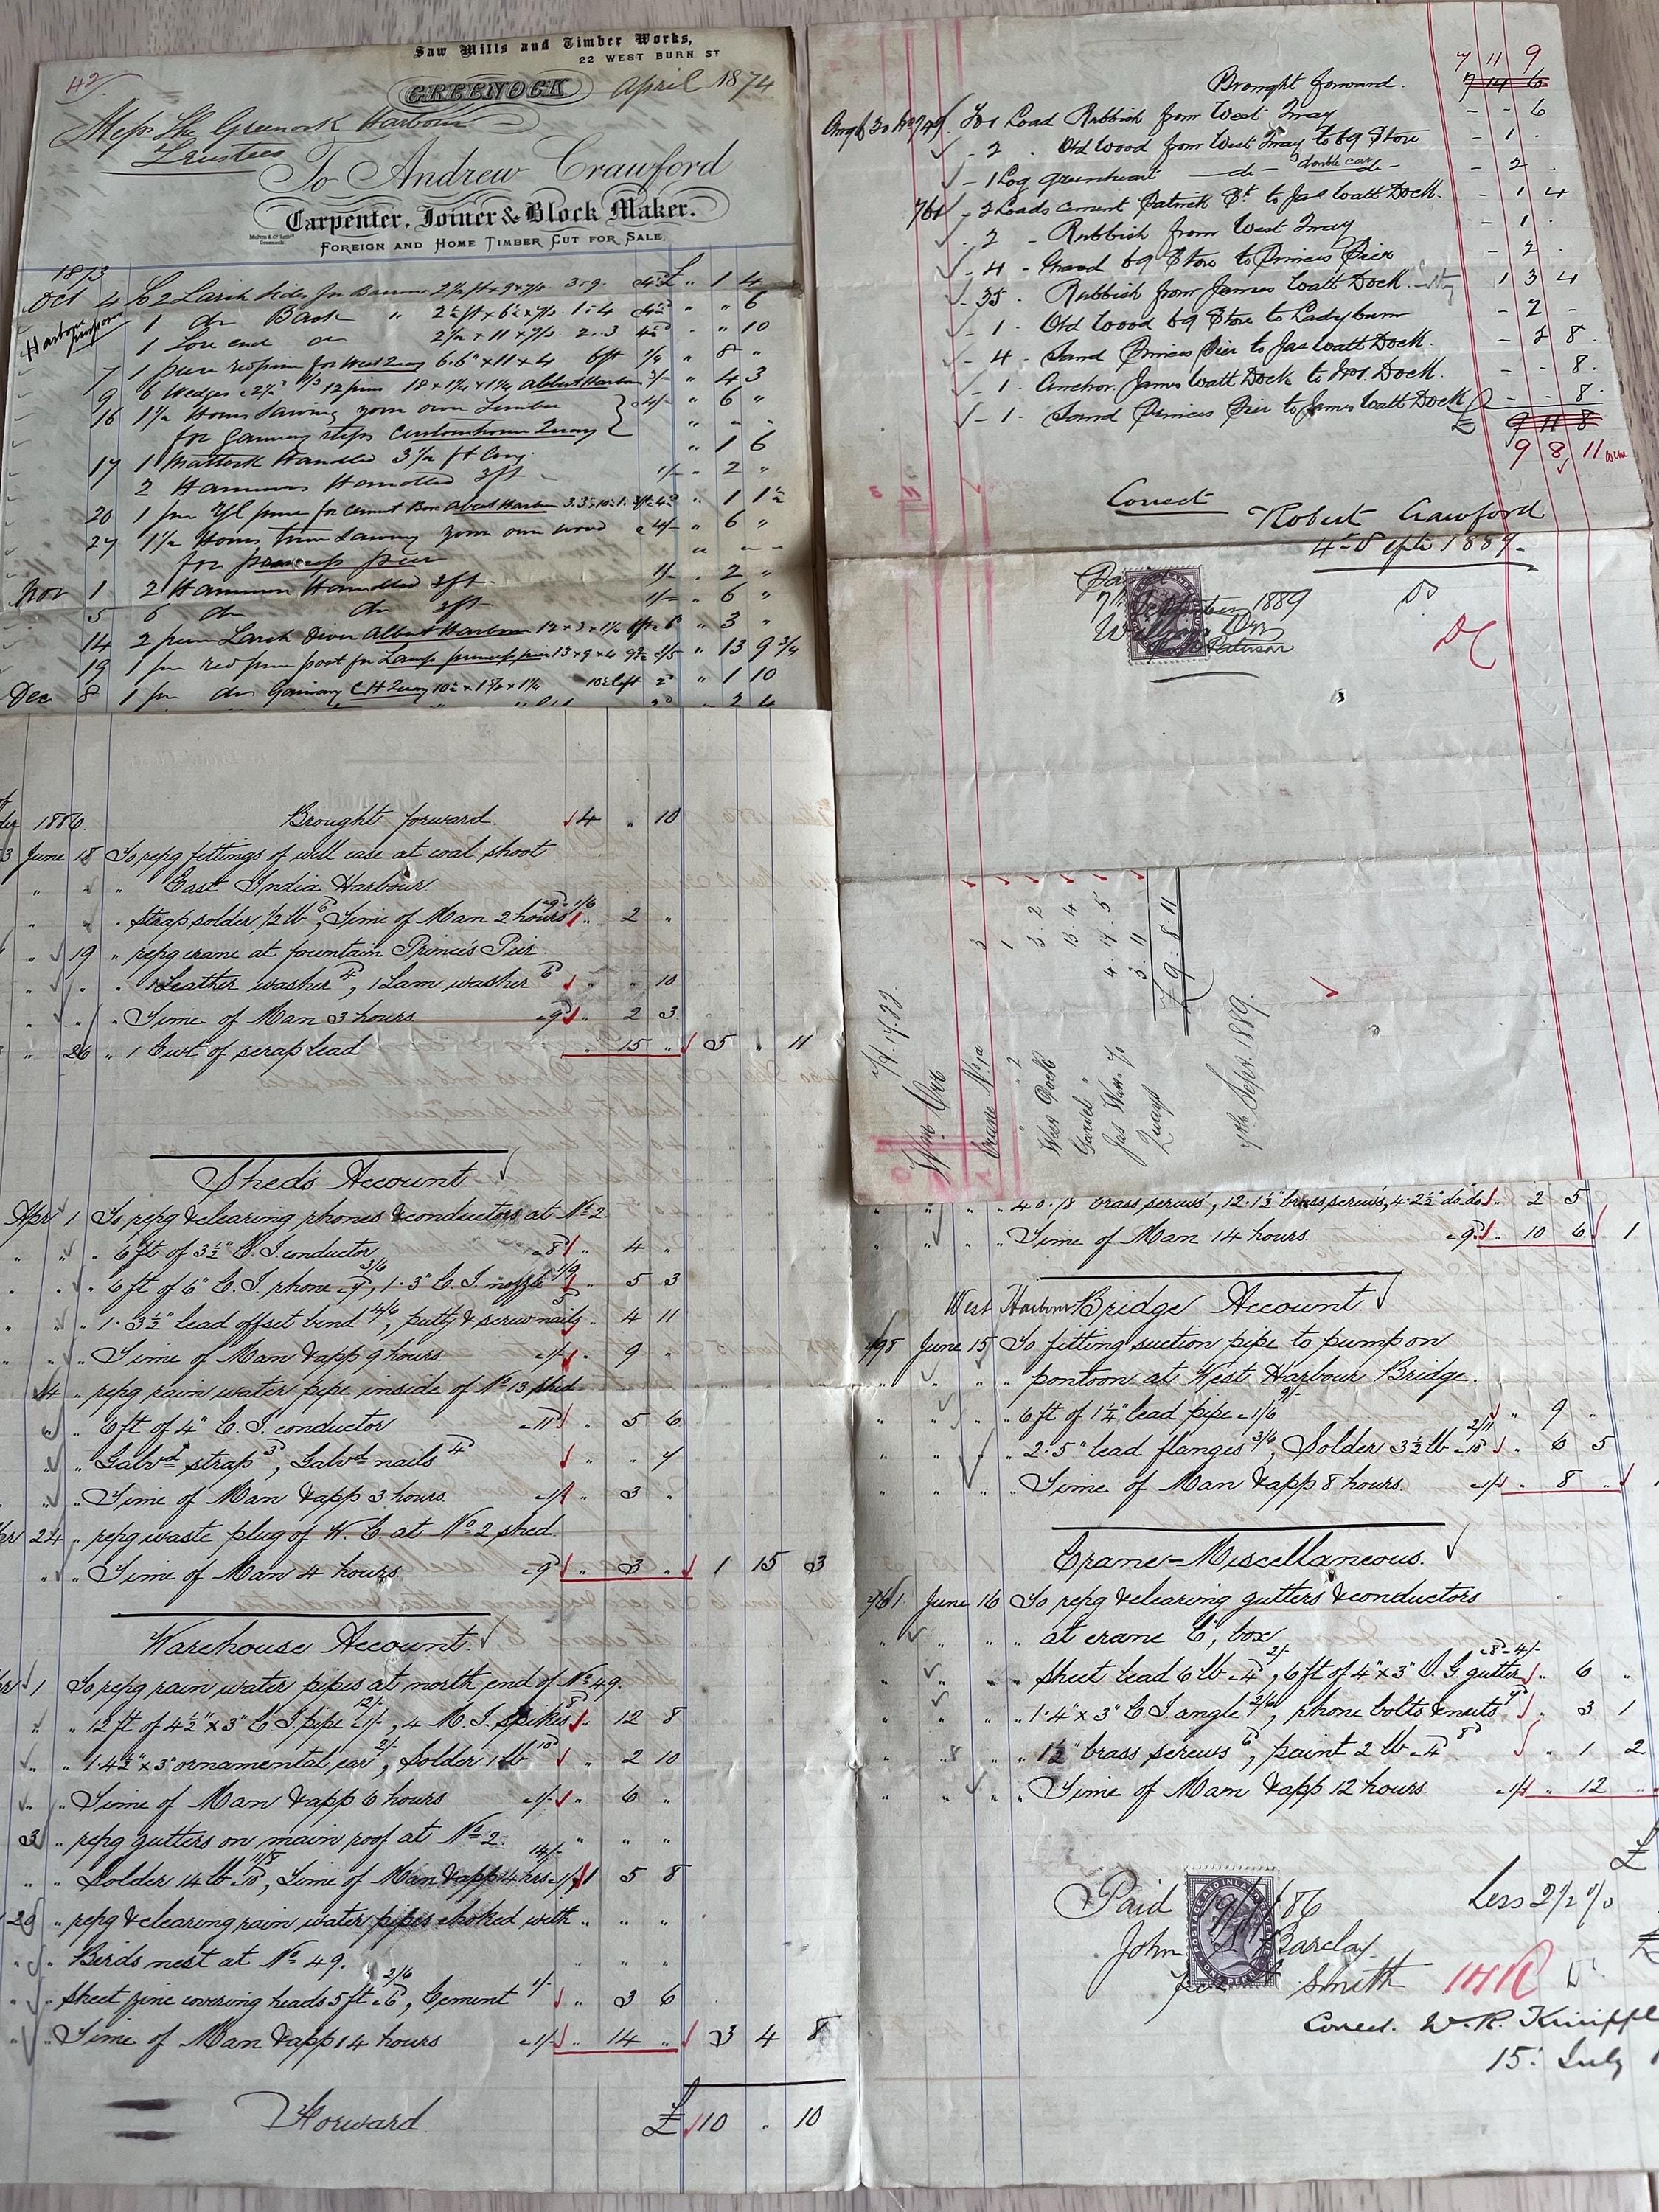 Saw Mills and Timber Works,
22 WEST BURN ST
42
GREENOCK April 1874
Messrs The Greenock Harbour
Trustees
To Andrew Crawford
Carpenter, Joiner & Block Maker.
FOREIGN AND HOME TIMBER CUT FOR SALE.
1873
Oct 4 2 Larch sides for Barrow 3.9. 4½ £ " 1 4
Harbour purposes
1 do Back " 1.4 4½ " " 6
1 Low end do 2.3 4½ " " 10
7 1 piece red pine for West Quay 6.6" x 11 x 4 6ft 1/4 " 8 "
9 6 Wedges 12 pins 18 x 1¼ x 1¼ Albert Harbour 3/- " 4 3
16 1½ Hours Sawing your own Timber 4/- " 6 "
for Gangway steps Customhouse Quay " " "
17 1 Mattock Handled 3½ ft long " 1 6
2 Hammers Handled 3ft 1/- " 2 "
20 1 pce pine for Cement Box Albert Harbour " 1 1½
27 1½ Hours time Sawing your own wood 4/- " 6 "
for princess pier " " "
Nov 1 2 Hammers Handled 3ft. 1/- " 2 "
5 6 do do 3ft 1/- " 6 "
14 2 pieces Larch Albert Harbour 12 x 3 x 1½ 6ft 6 " 3 "
19 1 pce red pine post for Lamp princes pier 13 x 9 x 4 " 13 9¾
Dec 8 1 pce do Gangway C H Quay " 1 10
" 2 4
7 11 9
Brought forward. 7 14 6
Augt 30 To 1 Load Rubbish from West Quay - - 6
- 2 . Old Wood from West Quay to 69 Store - 1 .
- 1 Log greenheart — do — double car do - - 2 .
761 - 2 Loads cement Patrick St to Jas Watt Dock. - 1 4
- 2 - Rubbish from West Quay - 1 .
- 4 - Wood 69 Store to Princes Pier - 2 .
- 35 . Rubbish from James Watt Dock. 1 3 4
- 1 - Old Wood 69 Store to Ladyburn - 2 -
- 4 - Sand Princes Pier to Jas Watt Dock. - 2 8.
- 1 . Anchor James Watt Dock to Dock. - - 8.
- 1 - Sand Princes Pier to James Watt Dock - - 8.
£ 9 11 8
9 8 11
Correct Robert Crawford
4th Septr 1889.
Paid
7th September 1889
William Orr
Paterson
Wm Orr
Crane No 1a 3
" " 2 1
West Dock 3. 2
Garvel " 13. 4
Jas Watt 4. 14. 5
Quays 3. 11
£ 9. 8. 11
7th Sept. 1889.
1886. Brought forward. 4 " 10
June 18 To repg fittings of well case at coal shoot
" " " East India Harbour.
" " . Strap solder ½ lb 6d, Time of Man 2 hours 9d 1/6 " 2 "
" 19 " repg crane at fountain Princes Pier.
" " " 1 Leather washer 4d, 1 Lam washer 6d " " 10
" " " Time of Man 3 hours 9d " 2 3
" 26 " 1 Cwt of scrap lead " 15 " 5 " 11
Sheds Account
Apr 1 To repg & clearing rhones & conductors at No 2.
" " " 6 ft of 3½" C. I. conductor 8d " 4 "
" " " 6 ft of 6" C. I. rhone 7d 3/6, 1. 3" C. I. nozzle 1/9 " 5 3
" " " 1. 3½" lead offset bend 4/6, putty & screw nails 5d " 4 11
" " " Time of Man & app 9 hours 1/- " 9 "
" 14 " repg rain water pipe inside of No 13 shed.
" " " 6 ft of 4" C. I. conductor 11d " 5 6
" " " Galvd strap 3d, Galvd nails 4d " " 7
" " " Time of Man & app 3 hours. 1/- " 3 "
Apr 24 " repg waste plug of W. C. at No 2 shed.
" " " Time of Man 4 hours. 9d " 3 " 1 15 3
Warehouse Account.
Apr 1 To repg rain water pipes at north end of No 49.
" " 12 ft of 4½" x 3" C I pipe 1/- 12/-, 4 M. I. spikes 8d " 12 8
" " 1. 4½" x 3" ornamental ear 2/-, Solder 1 lb 10d " 2 10
" " Time of Man & app 6 hours 1/- " 6 "
3 " repg gutters on main roof at No 2. " " "
" " Solder 14 lb 10d 11/8, Time of Man & app 14 hrs 1/- 14/- 1 5 8
29 " repg & clearing rain water pipes choked with " " "
" " Birds nest at No 49. " " "
" " Sheet zinc covering heads 5 ft 6d 2/6, Cement 1/- " 3 6
" " Time of Man & app 14 hours 1/- " 14 " 3 4 8
Forward £ 10 " 10
" " " 40. 18 brass screws, 12. 1½" brass screws, 4. 2½" do do " 2 5
" " " Time of Man 14 hours. 9d " 10 6 1
West Harbour Bridge Account.
498 June 15 To fitting suction pipe to pump on
" " " pontoon at West Harbour Bridge.
" " " 6 ft of 1¼" lead pipe 1/6 9/- " 9 "
" " " 2. 5" lead flanges 3/6, Solder 3½ lb 10d 2/11 " 6 5
" " " Time of Man & app 8 hours. 1/- " 8 "
Crane - Miscellaneous.
761 June 16 To repg & clearing gutters & conductors
" " " at crane C, box
" " " Sheet lead 6 lb 4d 2/-, 6 ft of 4" x 3" O. G. gutter 8d 4/- " 6 "
" " " 1. 4" x 3" C. I. angle 2/6, rhone bolts & nuts 7d " 3 1
" " " 1½" brass screws 6d, paint 2 lb 4d 8d " 1 2
" " " Time of Man & app 12 hours. 1/- " 12 "
£
Paid 19/7/86 Less 2½ %
John Barclay
per Smith
POSTAGE AND INLAND REVENUE
ONE PENNY
Correct. W. R. Kinipple
15. July